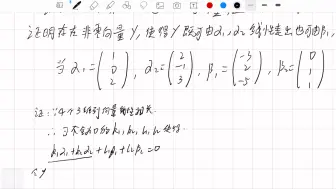 证明存在非零向量γ,使得γ既可由α₁,α₂线性表出也可由β₁,
当α₁=(1 0 2), α₂=(2 -1 3), β₁=(-3 2 -5), β₂=(0 1 1)
证:∵4个3维列向量线性相关.
∴∃不全为0的k₁,k₂,l₁,l₂使得
k₁α₁+k₂α₂+l₁β₁+l₂β₂=0
令